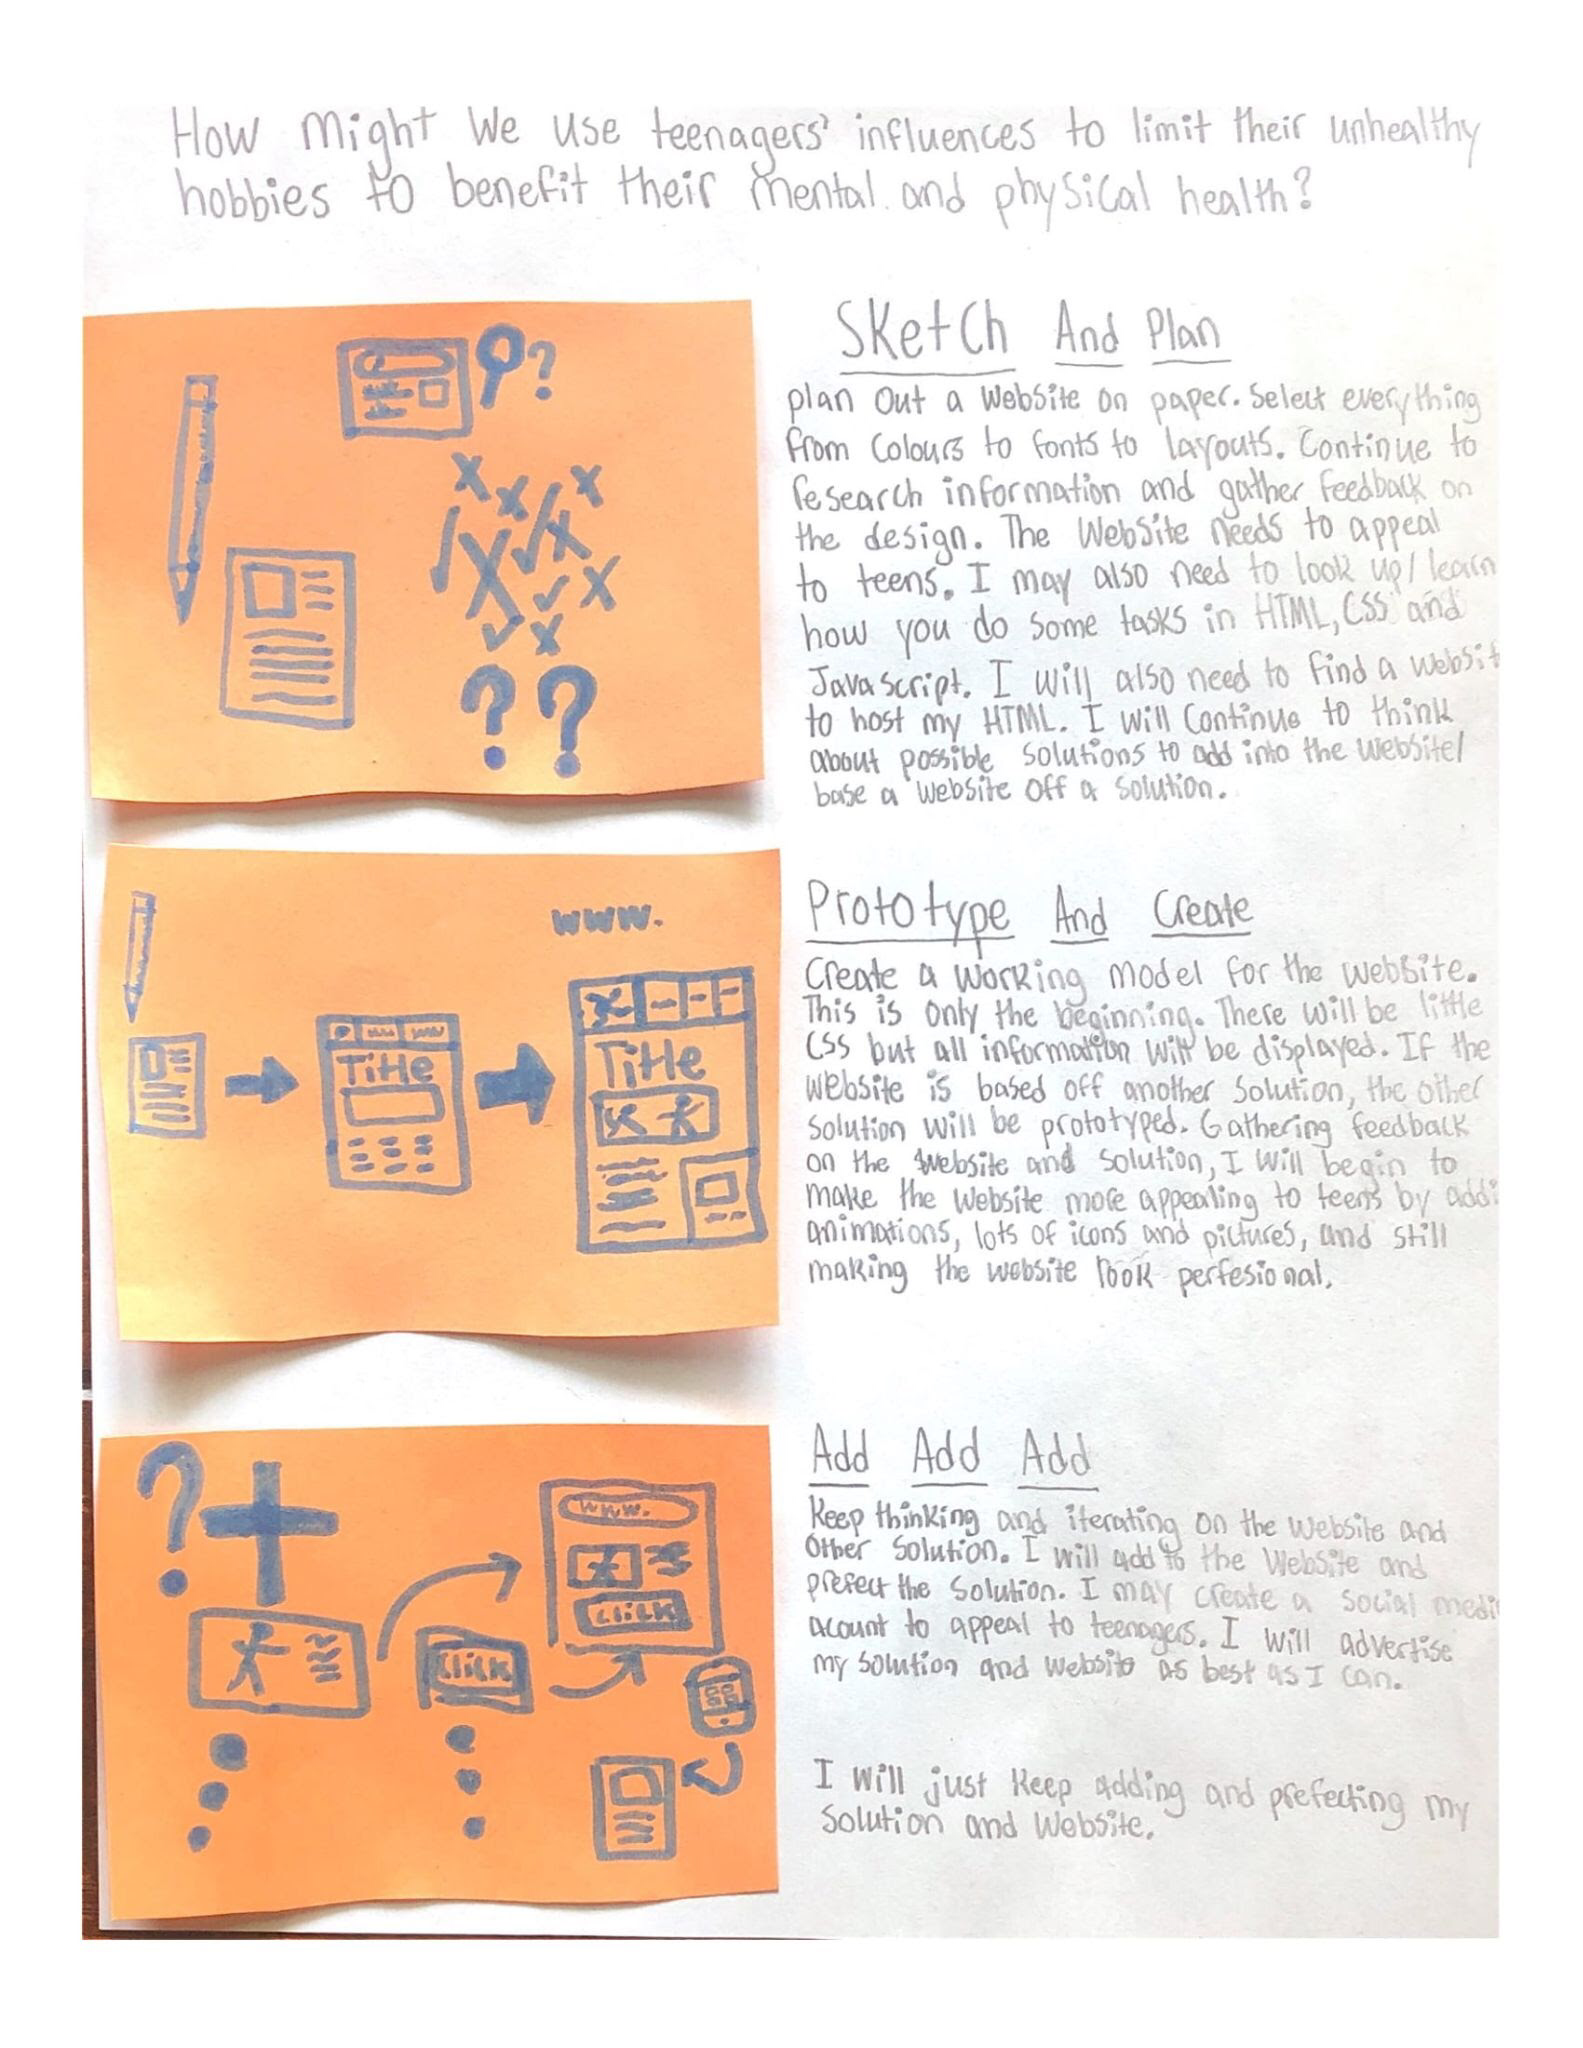 How Might We use teenagers' influences to limit their unhealthy
hobbies to benefit their mental and physical health?
?
Sketch And Plan
plan out a website on paper. Select everything
from colours to fonts to layouts. Continue to
research information and gather feedback on
the design. The Website needs to appeal
to teens. I may also need to look up/learn
how you do some tasks in HTML, CSS and
Javascript. I will also need to find a websit
to host my HTML. I will continue to think
about possible solutions to add into the website/
base a website off a solution.
? ?
www.
Title
Title
Prototype And Create
Create a working model for the website.
This is only the beginning. There will be little
CSS but all information will be displayed. If the
website is based off another solution, the other
solution will be prototyped. Gathering feedback
on the website and solution, I will begin to
make the website more appealing to teens by addi
animations, lots of icons and pictures, and still
making the website look perfesional.
?
www.
click
click
Add Add Add
Keep thinking and iterating on the website and
other solution. I will add to the website and
prefect the solution. I may create a social medi
acount to appeal to teenagers. I will advertise
my solution and website as best as I can.
I will just keep adding and prefecting my
solution and website.